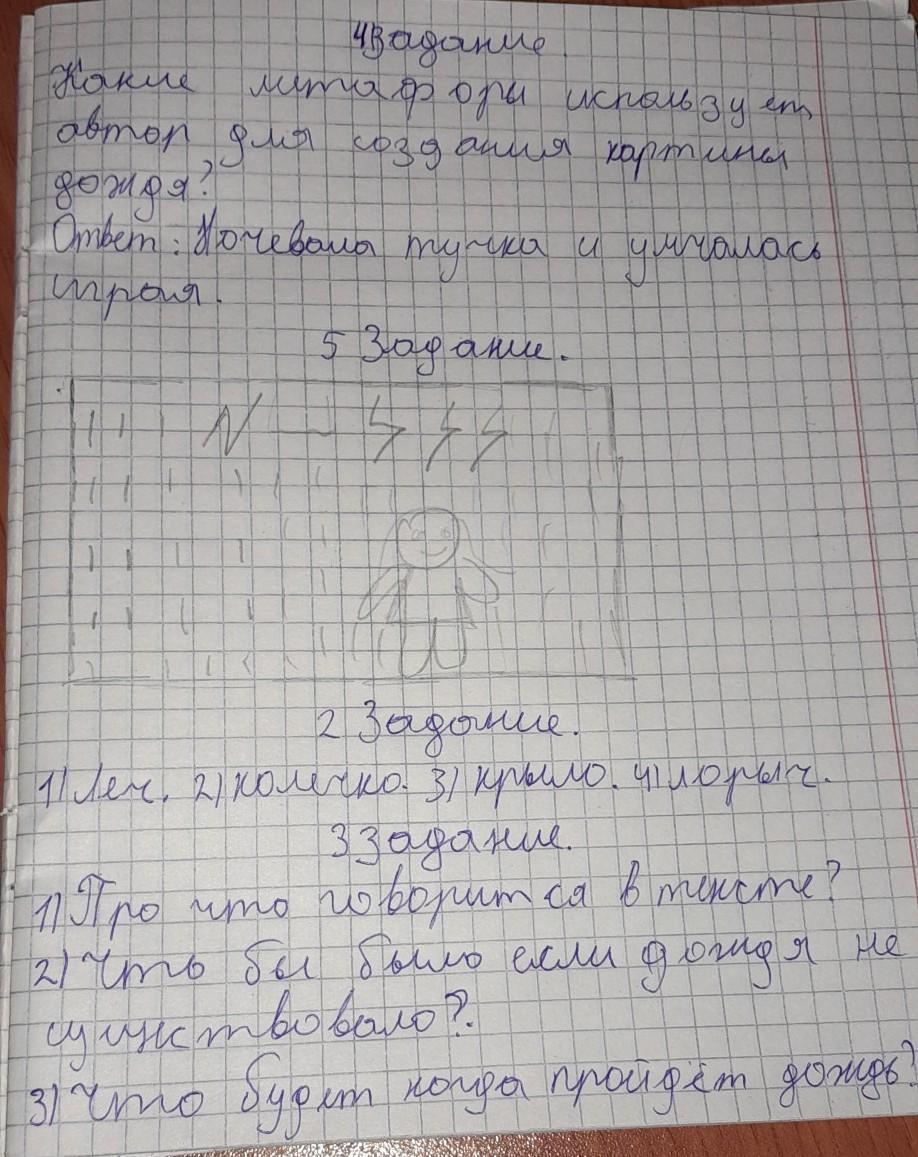 4 Задание
Какие метафоры использует
автор для создания картины
дождя?
Ответ: Ночевала тучка и умчалась
играя.
5 Задание.
2 Задание.
1) Лен. 2) колечко. 3) крыло. 4)
3 Задание.
1) Про что говорится в тексте?
2) Что бы было если дождя не
существовало?
3) Что будет когда пройдёт дождь?